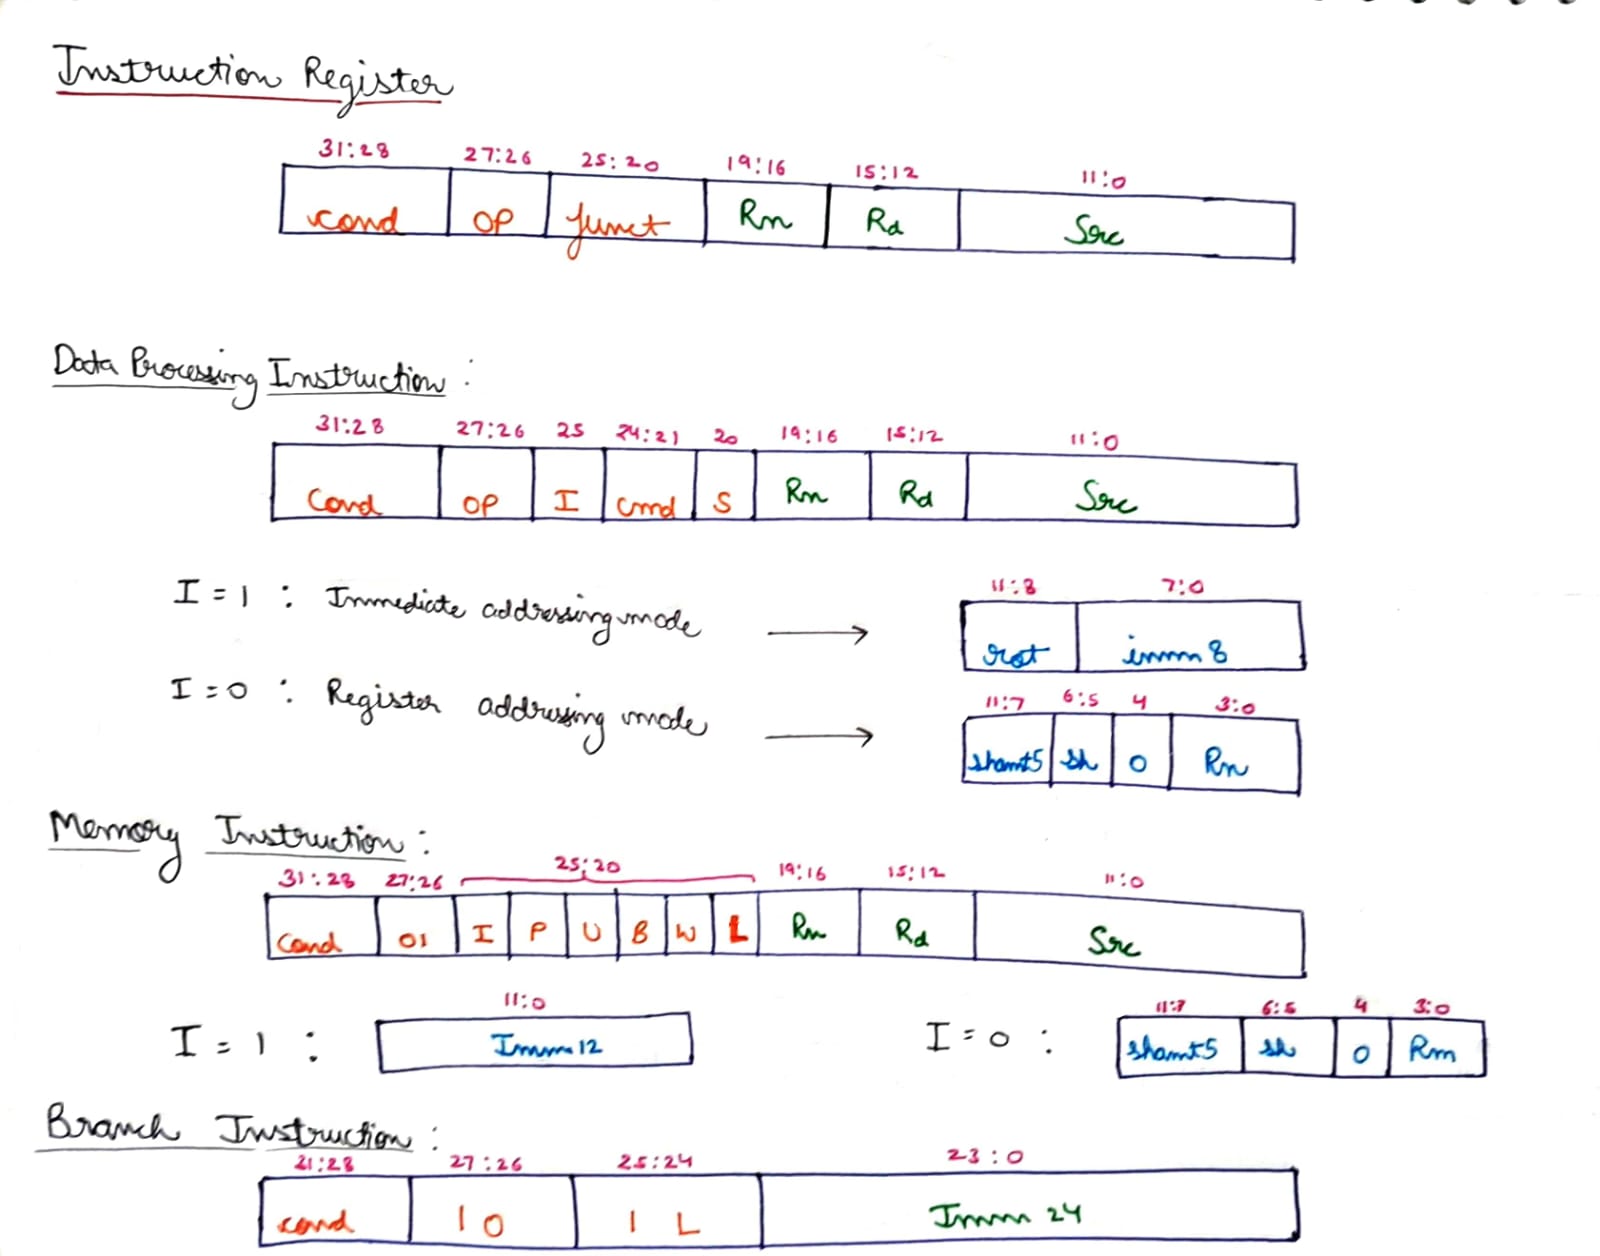 Instruction Register
31:28 27:26 25:20 19:16 15:12 11:0
cond OP funct Rn Rd Src
Data Processing Instruction :
31:28 27:26 25 24:21 20 19:16 15:12 11:0
Cond OP I cmd S Rn Rd Src
I = 1 : Immediate addressing mode →
11:8 7:0
rot imm 8
I = 0 : Register addressing mode →
11:7 6:5 4 3:0
shamt5 sh 0 Rn
Memory Instruction :
31:28 27:26 25:20 19:16 15:12 11:0
Cond 01 I P U B W L Rn Rd Src
I = 1 :
11:0
Imm 12
I = 0 :
11:7 6:5 4 3:0
shamt5 sh 0 Rm
Branch Instruction :
21:28 27:26 25:24 23:0
cond 1 0 1 L Imm 24